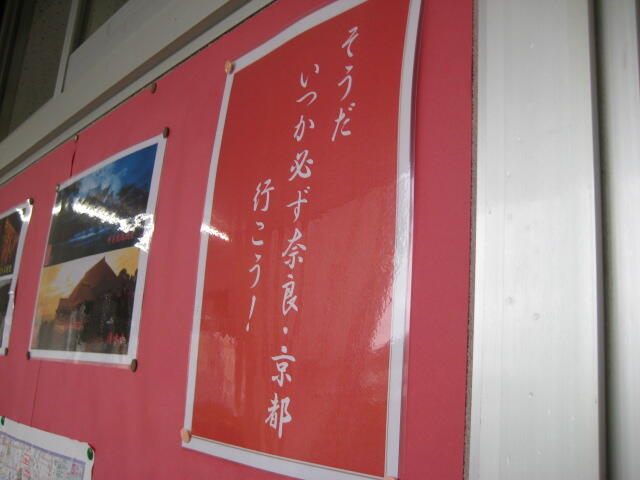 そうだ
いつか必ず奈良・京都
行こう！